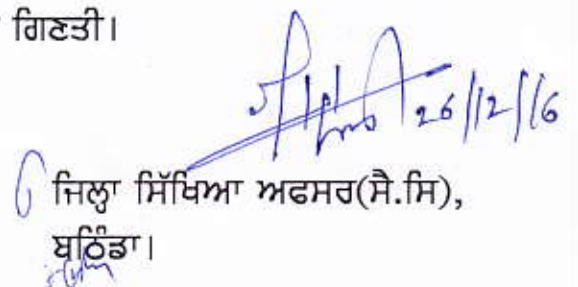 ਗਿਣਤੀ।
26/12/16
ਜਿਲ੍ਹਾ ਸਿੱਖਿਆ ਅਫਸਰ(ਸੈ.ਸਿ),
ਬਠਿੰਡਾ।